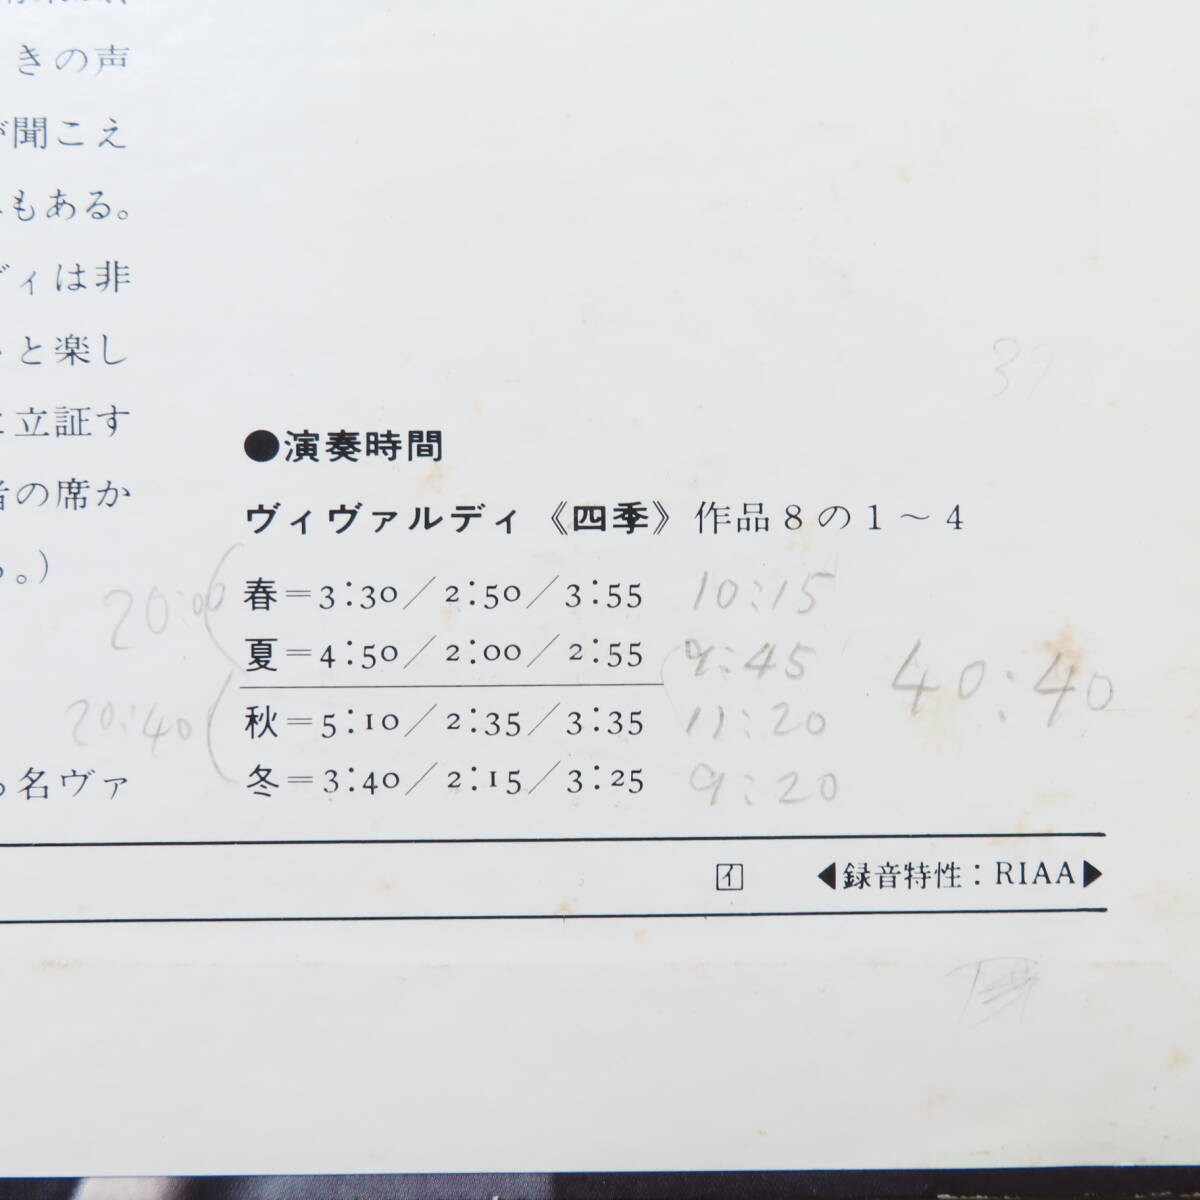 きの声
聞こえ
もある。
ディは非
と楽し
立証す
の席か
。)
名ヴァ
39
●演奏時間
ヴィヴァルディ《四季》作品8の1～4
20:00
春＝3:30／2:50／3:55 10:15
夏＝4:50／2:00／2:55 9:45
40:40
20:40
秋＝5:10／2:35／3:35 11:20
冬＝3:40／2:15／3:25 9:20
イ ◀録音特性：RIAA▶